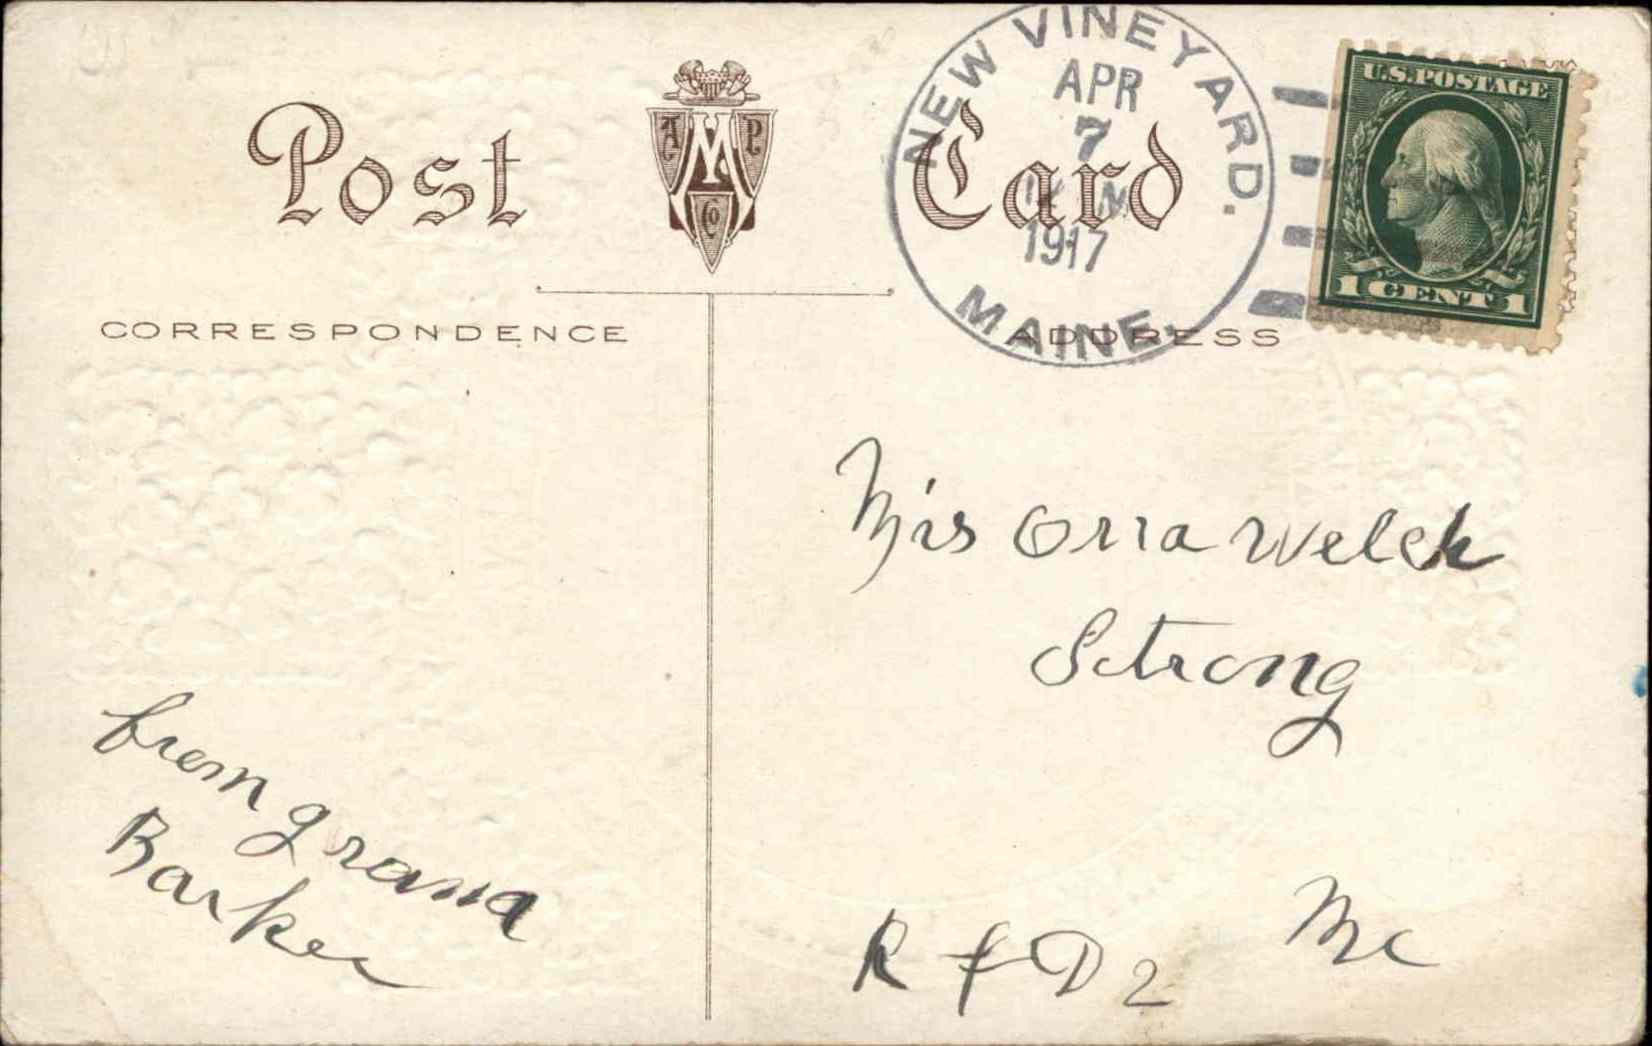 Post Card
A M P
Co
NEW VINEYARD.
APR
7
M
1917
MAINE.
U.S. POSTAGE
1 CENT 1
CORRESPONDENCE
ADDRESS
Mis Orra Welch
Strong
from grama
Barker
R f D 2
Me